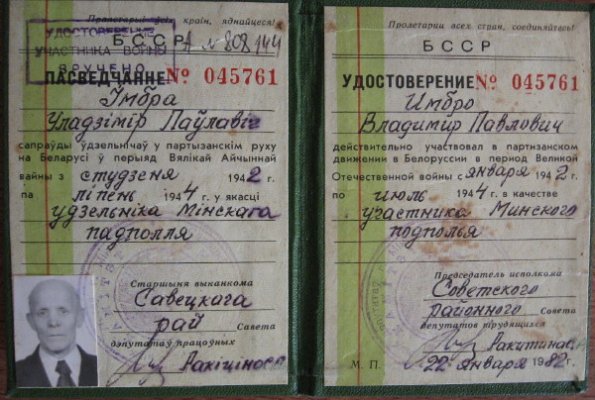 Пралетарыі ўсіх краін, яднайцеся!
УДОСТОВЕРЕНИЕ
УЧАСТНИКА ВОЙНЫ
ВРУЧЕНО
БССР А № 808144
ПАСВЕДЧАННЕ № 045761
Імбра
Уладзімір Паўлавіч
сапраўды ўдзельнічаў у партызанскім руху
на Беларусі ў перыяд Вялікай Айчыннай
вайны з студзеня 1942 г.
па ліпень 1944 г. у якасці
удзельніка Мінскага
падполля
Старшыня выканкома
Савецкага
рай Савета
дэпутатаў працоўных
Ракіцінос
Пролетарии всех стран, соединяйтесь!
БССР
УДОСТОВЕРЕНИЕ № 045761
Имбро
Владимир Павлович
действительно участвовал в партизанском
движении в Белоруссии в период Великой
Отечественной войны с января 1942 г.
по июль 1944 г. в качестве
участника Минского
подполья
Председатель исполкома
Советского
районного Совета
депутатов трудящихся
М. П. 22 января 1982 г.